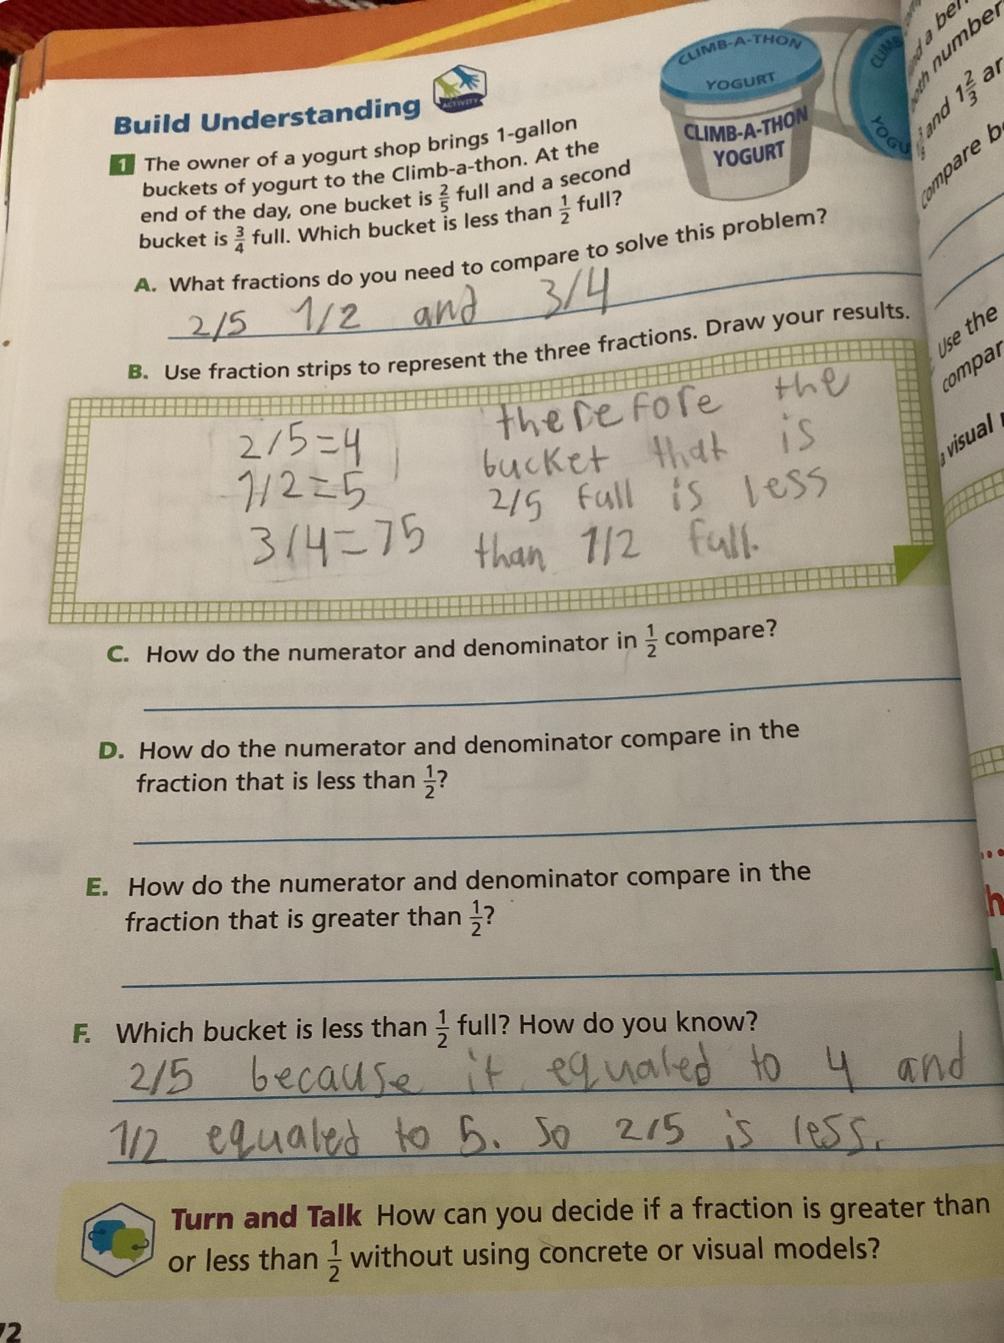 CLIMB-A-THON
YOGURT
CLIMB-A-THON
YOGURT
Build Understanding
ACTIVITY
1 The owner of a yogurt shop brings 1-gallon
buckets of yogurt to the Climb-a-thon. At the
end of the day, one bucket is 2/5 full and a second
bucket is 3/4 full. Which bucket is less than 1/2 full?
A. What fractions do you need to compare to solve this problem?
2/5 1/2 and 3/4
B. Use fraction strips to represent the three fractions. Draw your results.
2/5=4
1/2=5
3/4=75
therefore the
bucket that is
2/5 full is less
than 1/2 full.
C. How do the numerator and denominator in 1/2 compare?
D. How do the numerator and denominator compare in the
fraction that is less than 1/2?
E. How do the numerator and denominator compare in the
fraction that is greater than 1/2?
F. Which bucket is less than 1/2 full? How do you know?
2/5 because it equaled to 4 and
1/2 equaled to 5. So 2/5 is less.
Turn and Talk How can you decide if a fraction is greater than
or less than 1/2 without using concrete or visual models?
72
number
and 1 2/3
compare
Use the
compar
visual